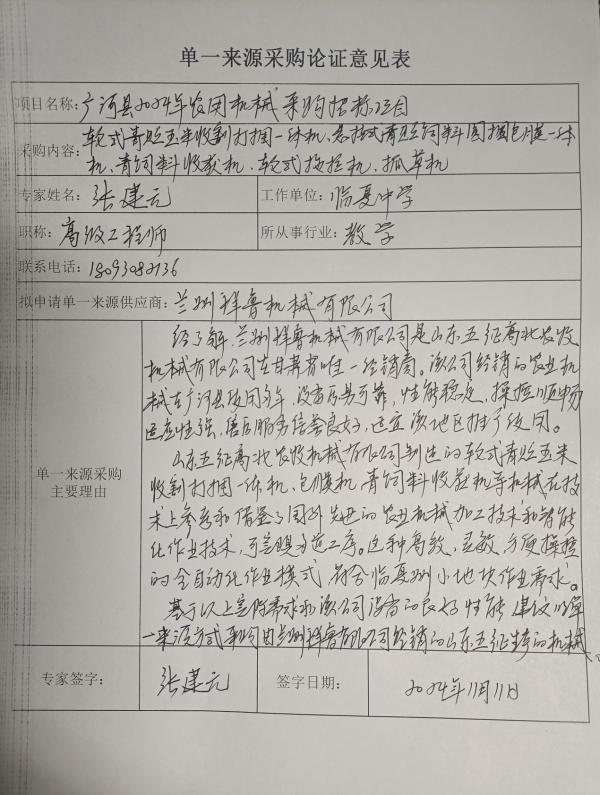 单一来源采购论证意见表
项目名称:广河县2024年农用机械采购招标项目
采购内容:轮式青贮玉米收割打捆一体机、悬挂式青贮饲料圆捆包膜一体
机、青饲料收获机、轮式拖拉机、抓草机
专家姓名:张建元 工作单位:临夏中学
职称:高级工程师 所从事行业:教学
联系电话:
拟申请单一来源供应商:兰州祥鲁机械有限公司
单一来源采购
主要理由
经了解,兰州祥鲁机械有限公司是山东五征高北农牧
机械有限公司在甘肃省唯一经销商。该公司经销的农业机
械在广河县使用多年,设备质量可靠,性能稳定,操控顺畅
适应性强,售后服务信誉良好,适宜该地区推广使用。
山东五征高北农牧机械有限公司制造的轮式青贮玉米
收割打捆一体机、包膜机、青饲料收获机等机械在技
术上参考和借鉴了国外先进的农业机械加工技术和智能
化作业技术,可实现多道工序。这种高效,灵敏,方便操控
的全自动化作业模式,符合临夏州小地块作业需求。
基于以上实际需求和该公司设备的良好性能,建议以单
一来源方式采购由兰州祥鲁有限公司经销的山东五征生产的机械
专家签字: 张建元 签字日期: 2024年11月11日